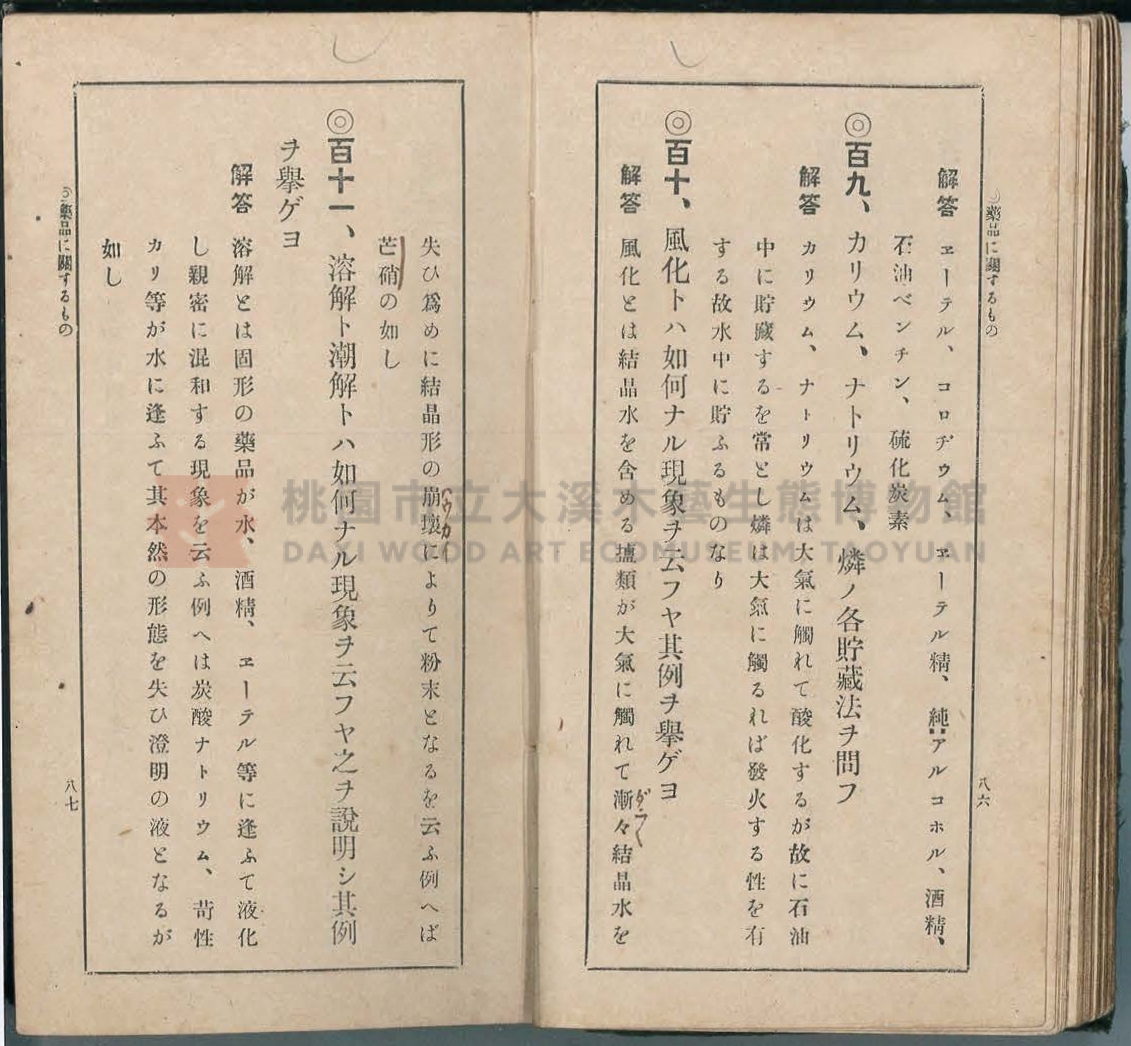 ◎藥品に關するもの
八六
解答 ヱーテル、コロヂウム、ヱーテル精、純アルコホル、酒精、
石油ベンチン、硫化炭素
◎百九、カリウム、ナトリウム、燐ノ各貯藏法ヲ問フ
解答 カリウム、ナトリウムは大氣に觸れて酸化するが故に石油
中に貯藏するを常とし燐は大氣に觸るれば發火する性を有
する故水中に貯ふるものなり
◎百十、風化トハ如何ナル現象ヲ云フヤ其例ヲ擧ゲヨ
解答 風化とは結晶水を含める塩類が大氣に觸れて漸々結晶水を
失ひ爲めに結晶形の崩壞によりて粉末となるを云ふ例へば
芒硝の如し
◎百十一、溶解ト潮解トハ如何ナル現象ヲ云フヤ之ヲ説明シ其例
ヲ擧ゲヨ
解答 溶解とは固形の藥品が水、酒精、ヱーテル等に逢ふて液化
し親密に混和する現象を云ふ例へは炭酸ナトリウム、苛性
カリ等が水に逢ふて其本然の形態を失ひ澄明の液となるが
如し
◎藥品に關するもの
八七
桃園市立大溪木藝生態博物館
DAXI WOOD ART ECOMUSEUM, TAOYUAN